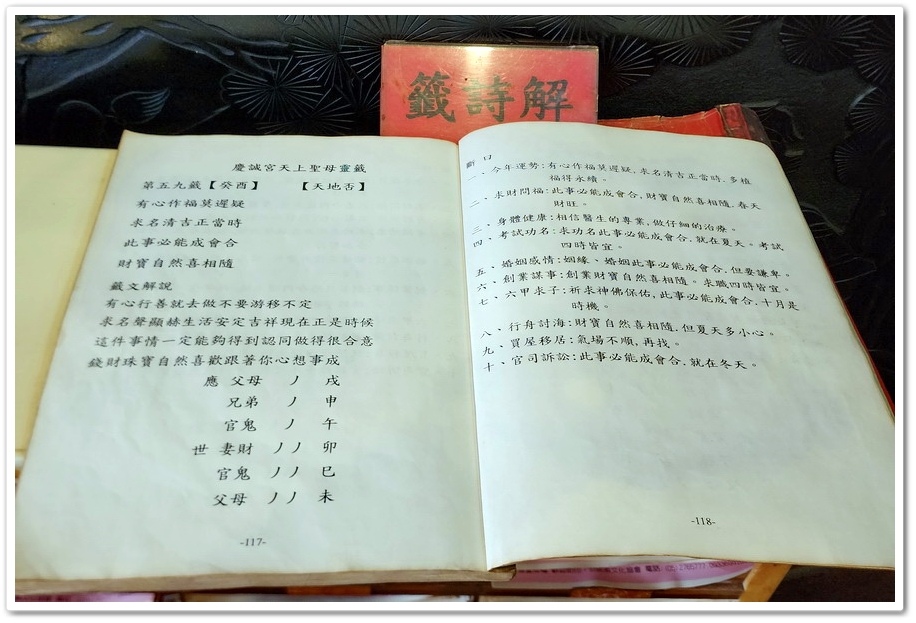 籤詩解
慶誠宮天上聖母靈籤
第五九籤【癸酉】 【天地否】
有心作福莫遲疑
求名清吉正當時
此事必能成會合
財寶自然喜相隨
籤文解說
有心行善就去做不要游移不定
求名聲顯赫生活安定吉祥現在正是時候
這件事情一定能夠得到認同做得很合意
錢財珠寶自然喜歡跟著你心想事成
應 父母 ノ 戌
兄弟 ノ 申
官鬼 ノ 午
世 妻財 ノノ 卯
官鬼 ノノ 巳
父母 ノノ 未
-117-
斷 曰
一、今年運勢:有心作福莫遲疑,求名清吉正當時,多植
福得永續。
二、求財問福:此事必能成會合,財寶自然喜相隨,春天
財旺。
三、身體健康:相信醫生的專業,做仔細的治療。
四、考試功名:求功名此事必能成會合,就在夏天。考試
四時皆宜。
五、婚姻感情:姻緣、婚姻此事必能成會合,但要謙卑。
六、創業謀事:創業財寶自然喜相隨。求職四時皆宜。
七、六甲求子:祈求神佛保佑,此事必能成會合,十月是
時機。
八、行舟討海:財寶自然喜相隨,但夏天多小心。
九、買屋移居:氣場不順,再找。
十、官司訴訟:此事必能成會合,就在冬天。
-118-